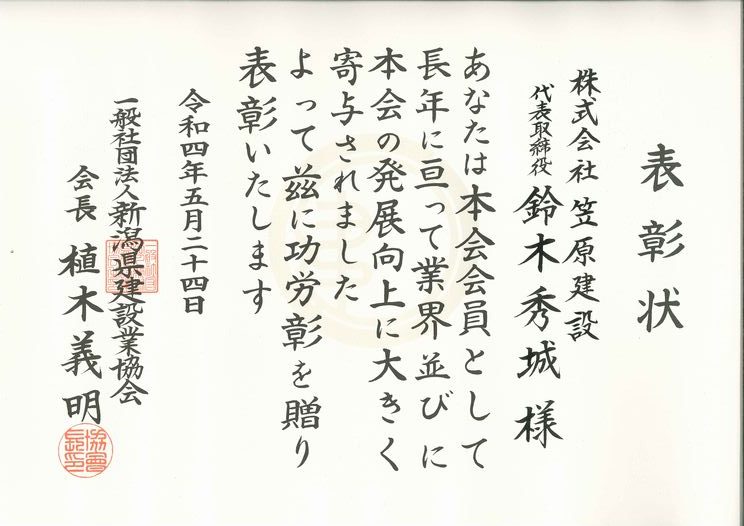 表彰状
株式会社 笠原建設
代表取締役 鈴木秀城 様
あなたは本会会員として
長年に亘って業界並びに
本会の発展向上に大きく
寄与されました
よって茲に功労彰を贈り
表彰いたします
令和四年五月二十四日
一般社団法人新潟県建設業協会
会長 植木義明